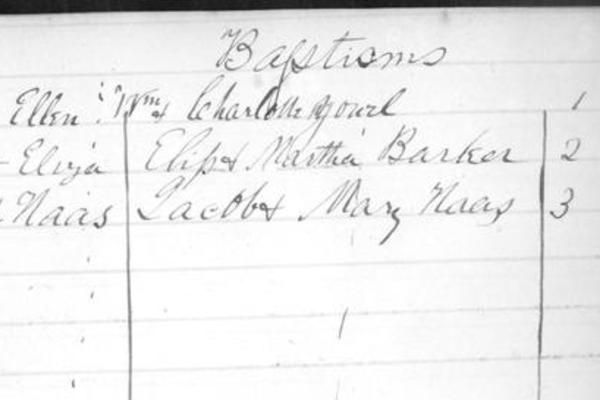 Baptisms
Ellen Wm & Charlotte 1
Eliza & Martha Barker 2
Naas Jacob & Mary Naas 3